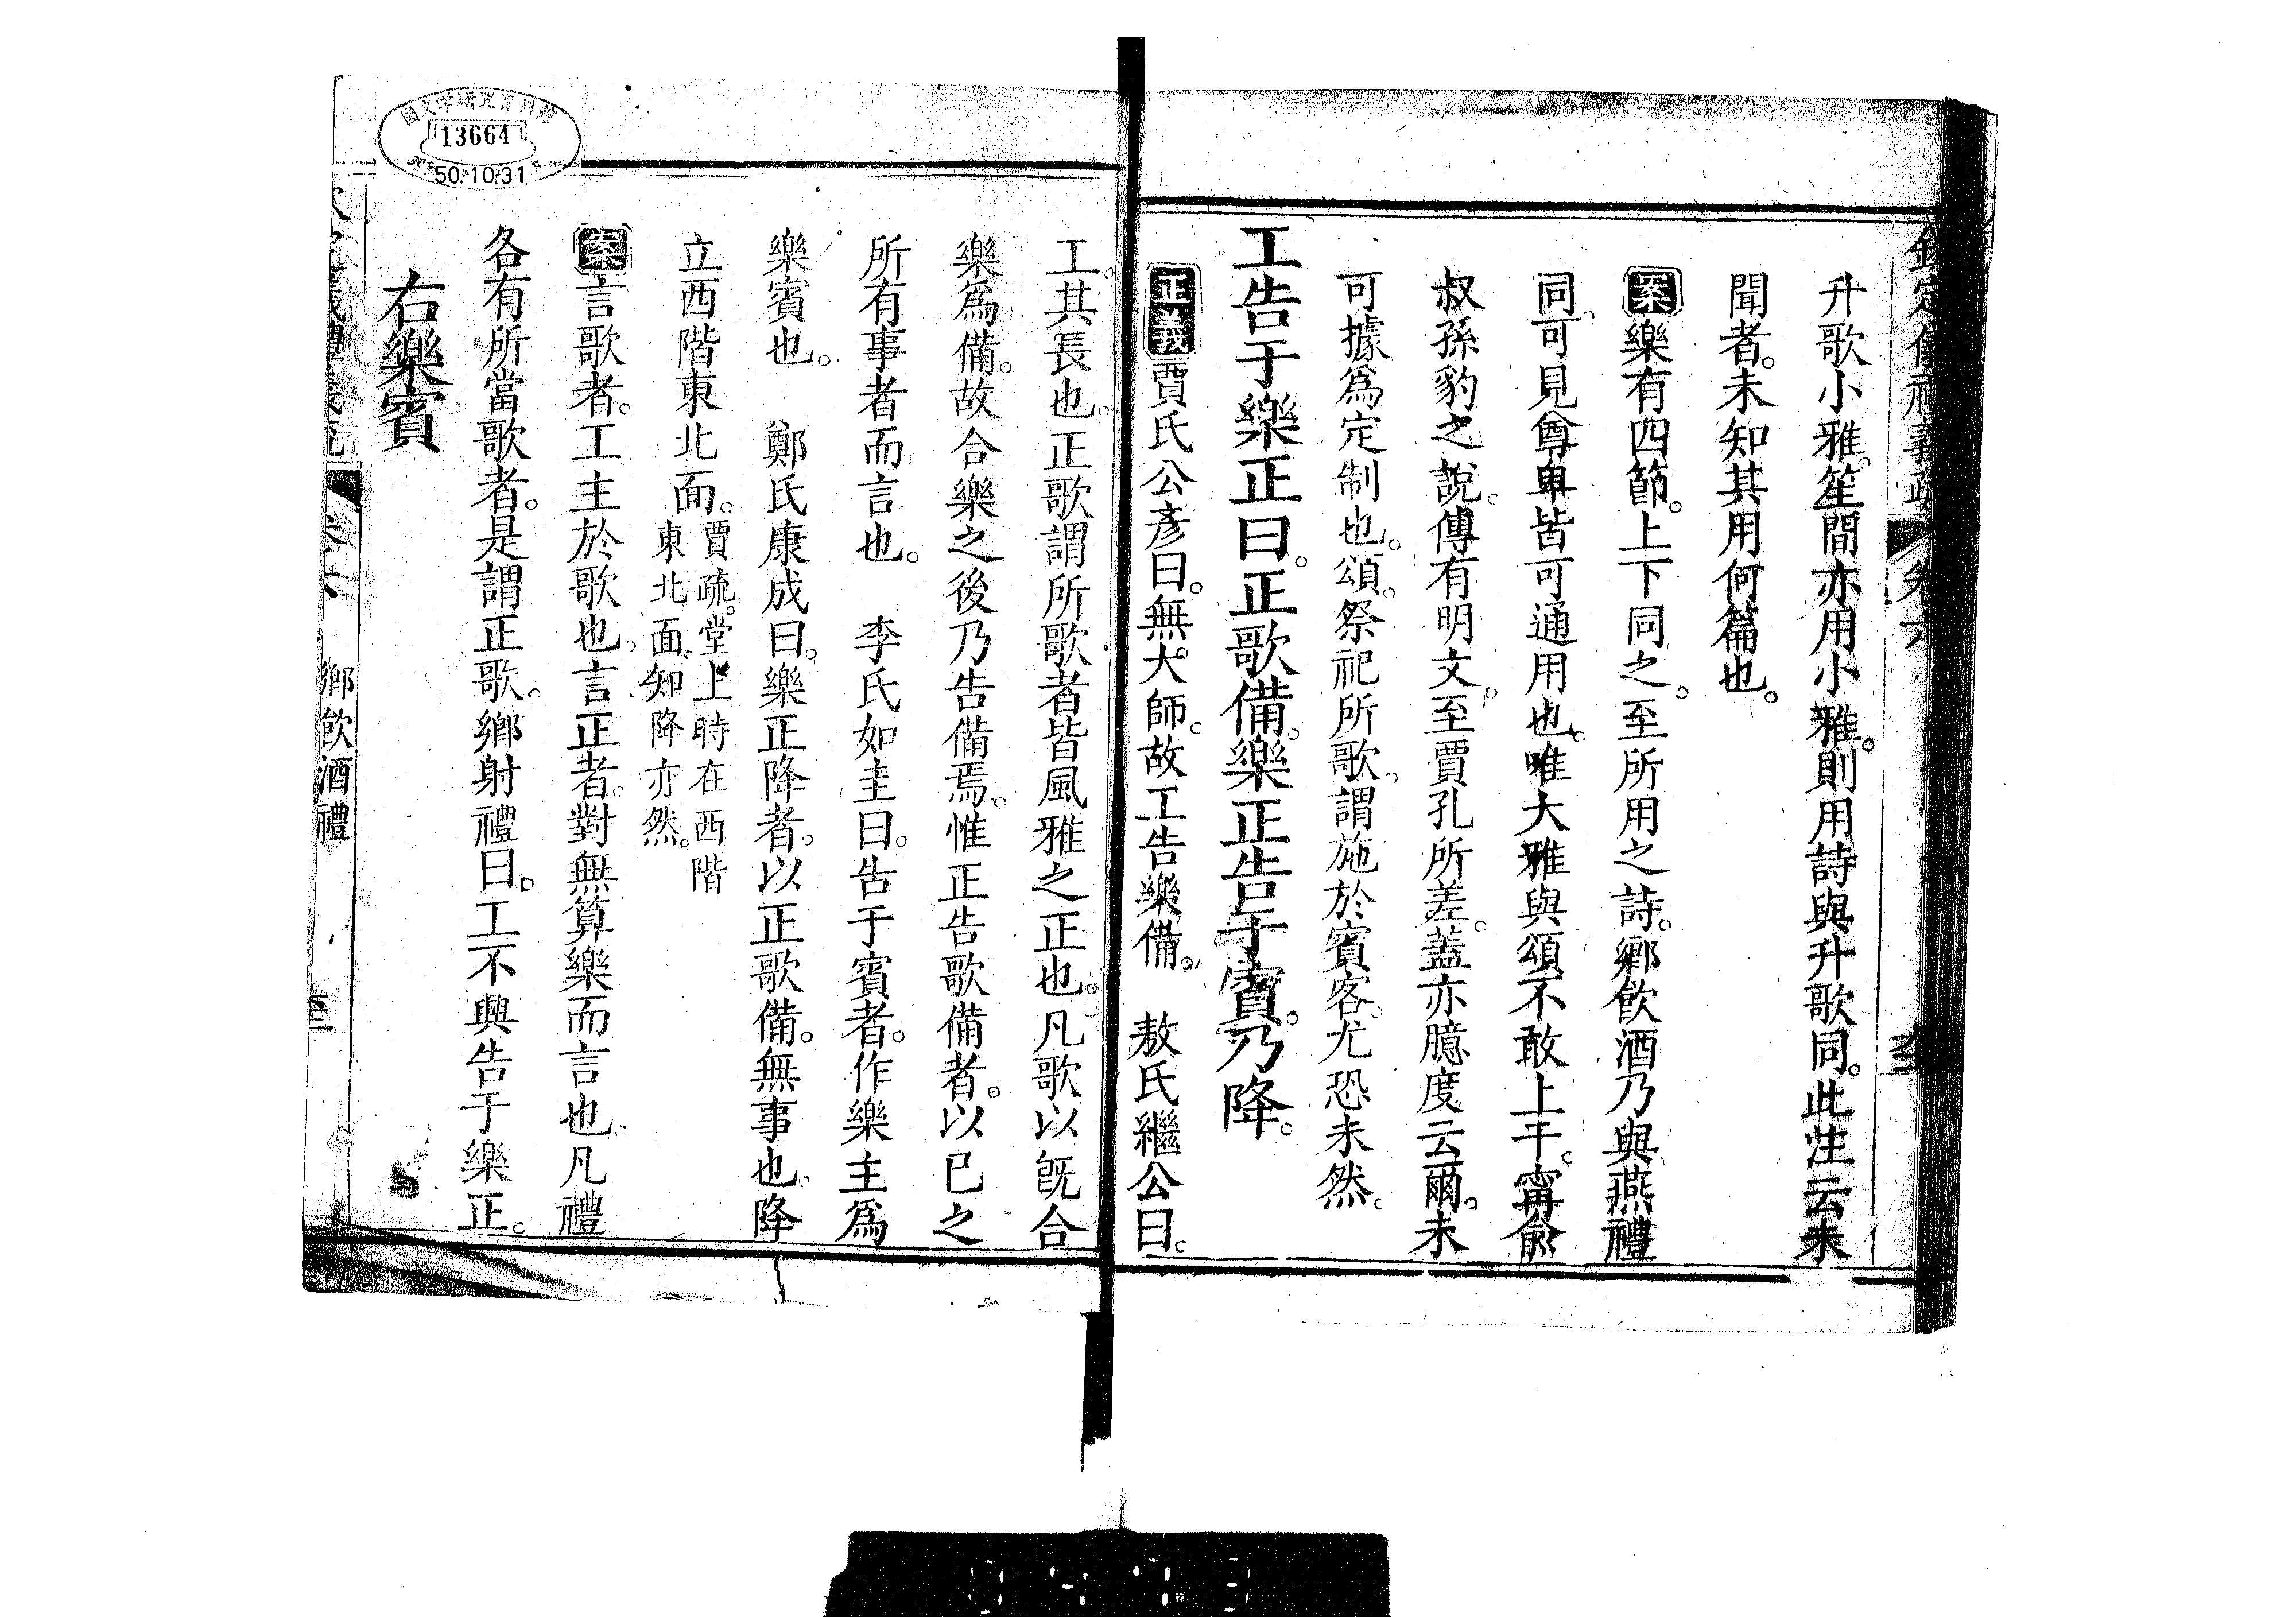 欽定儀禮義疏 卷六
升歌小雅。笙間亦用小雅。則用詩與升歌同。此注云未
聞者。未知其用何篇也。
案樂有四節。上下同之。至所用之詩。鄉飲酒乃與燕禮
同。可見尊卑皆可通用也。唯大雅與頌不敢上干。甯俞
叔孫豹之說。傳有明文。至賈孔所差。蓋亦臆度云爾。未
可據爲定制也。頌。祭祀所歌。謂施於賓客。尤恐未然。
工告于樂正曰。正歌備。樂正告于賓。乃降。
正義賈氏公彥曰。無大師。故工告樂備。 敖氏繼公曰。
工。其長也。正歌謂所歌者皆風雅之正也。凡歌以旣合
樂爲備。故合樂之後乃告備焉。惟正告歌備者。以已之
所有事者而言也。 李氏如圭曰。告于賓者。作樂主爲
樂賓也。 鄭氏康成曰。樂正降者。以正歌備。無事也。降
立西階東北面。賈疏。堂上時在西階
東北面。知降亦然。
案言歌者。工主於歌也。言正者。對無算樂而言也。凡禮
各有所當歌者。是謂正歌。鄉射禮曰。工不興告于樂正。
右樂賓
鄉飲酒禮
國文学研究資料館
13664
50.10.31